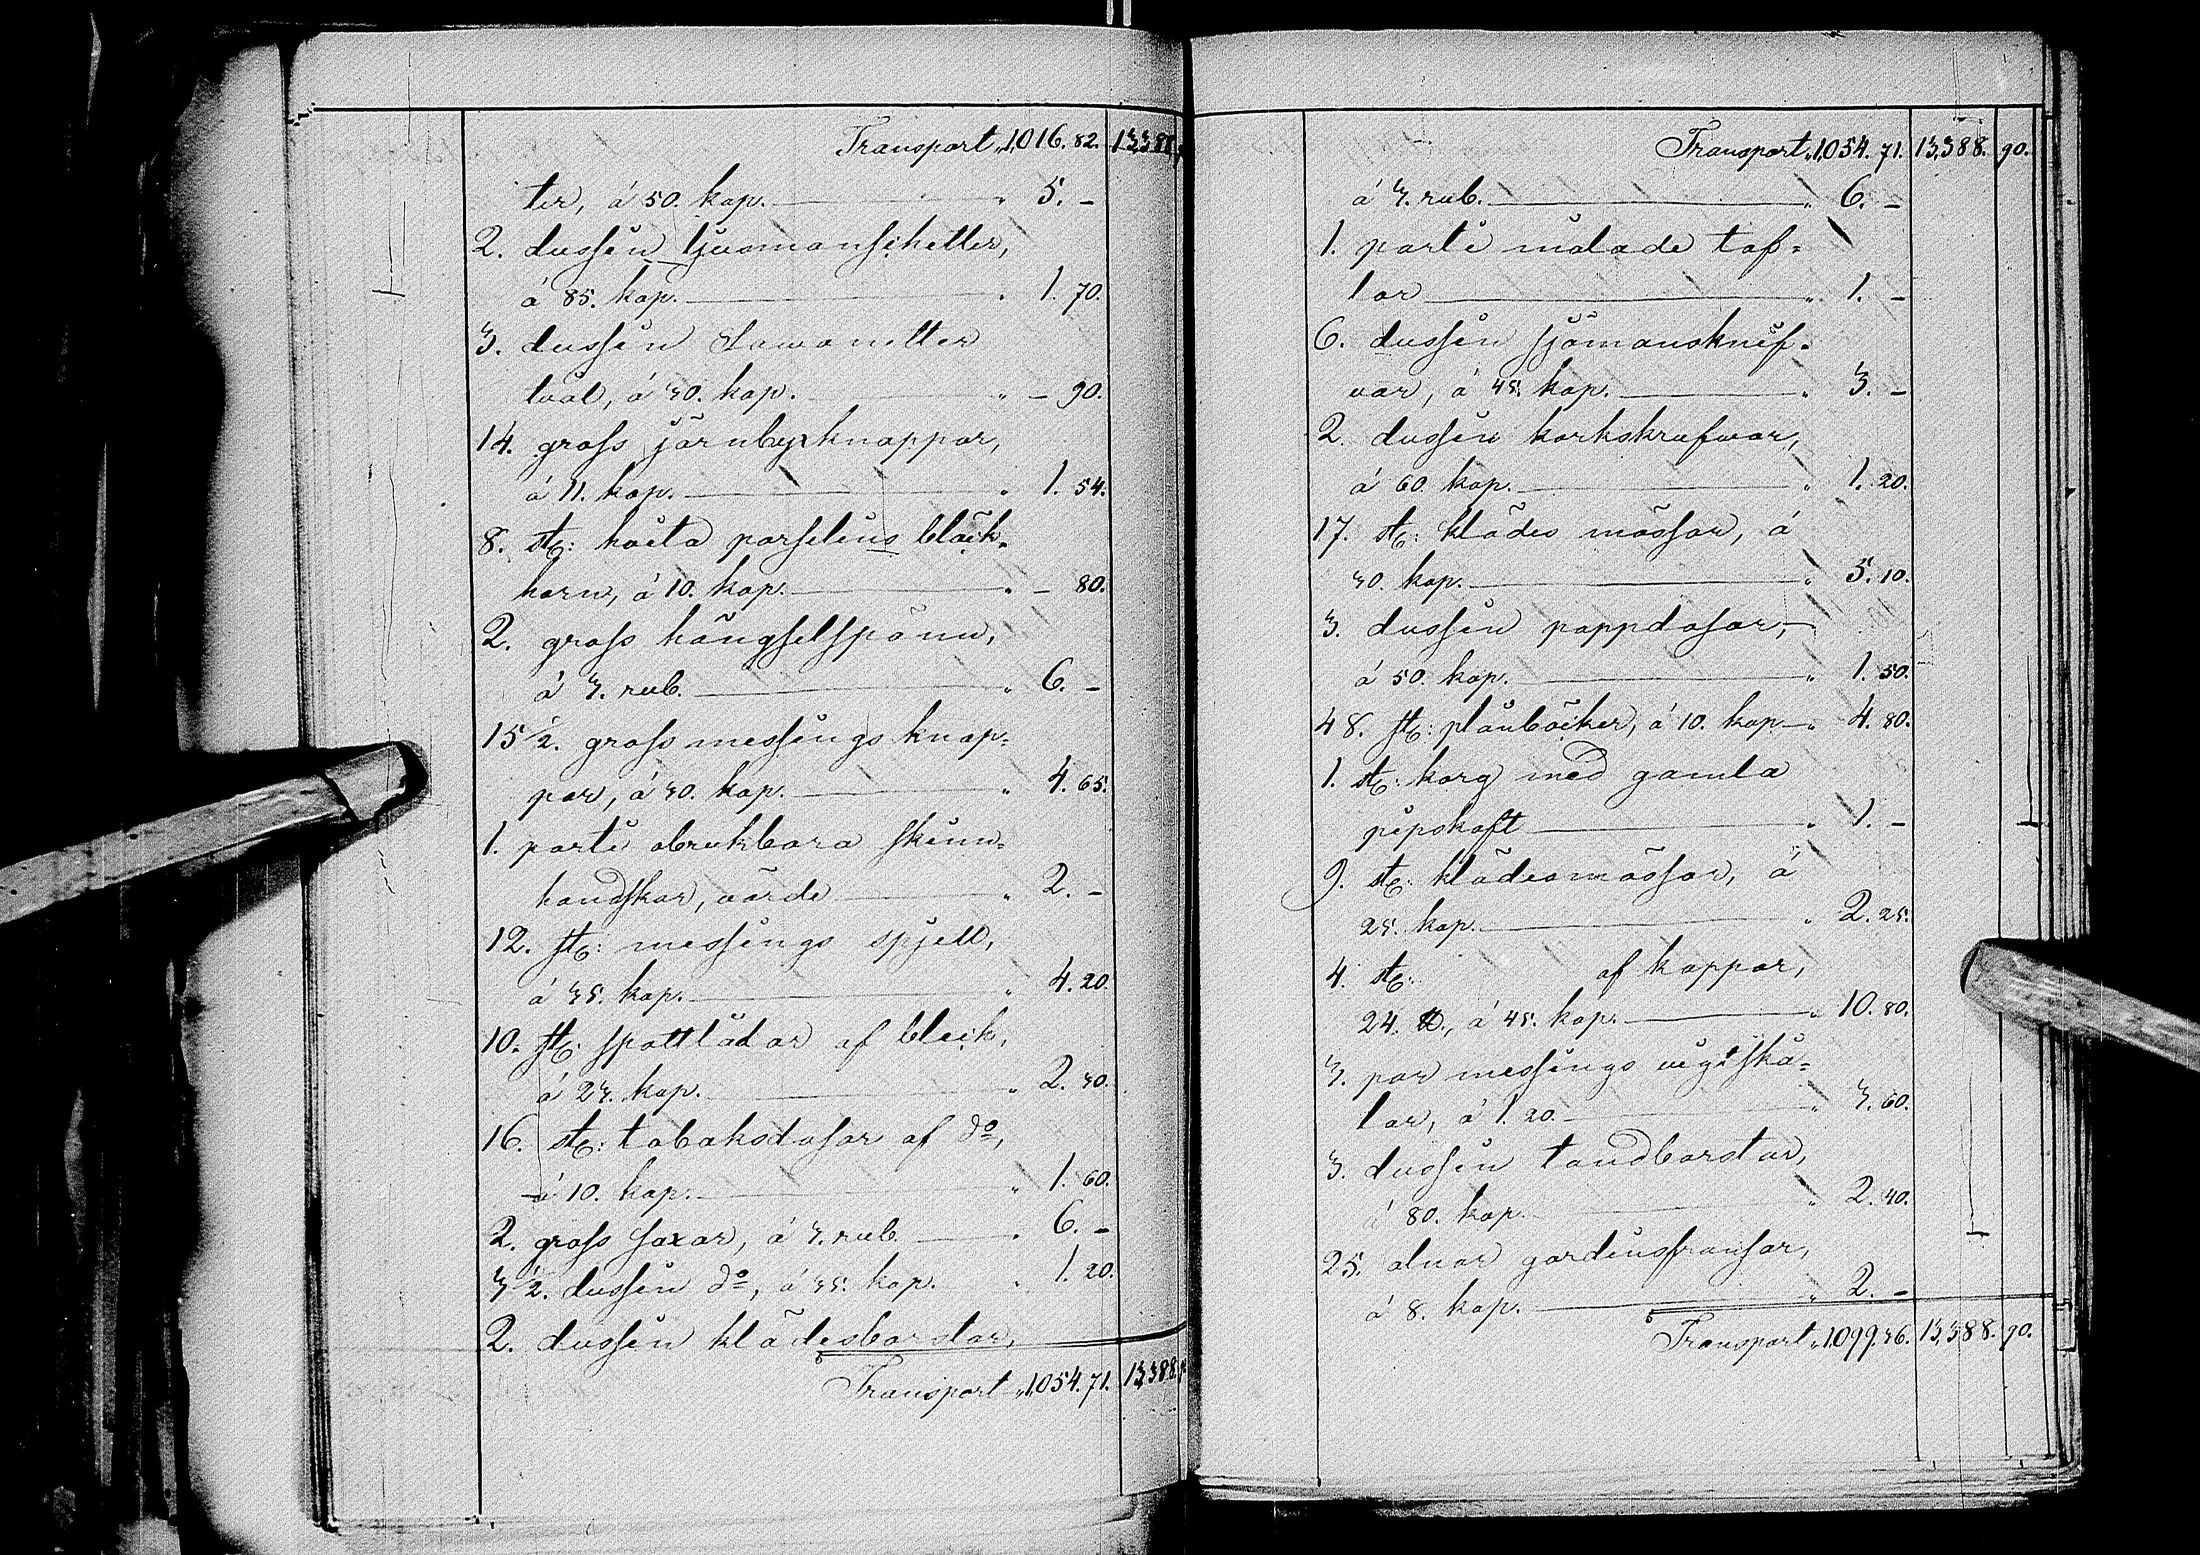 Transport „ 1,016. 82. 13,388.
ter, á 50. kop. „ 5. –
2. dussin ljusmanschetter,
á 85. kop. „ 1. 70.
3. dussin
tvål, á 30. kop. „ – 90.
14. gross järnbyxknappar,
á 11. kop. „ 1. 54.
8. st: hvita porslins bläck-
horn, á 10. kop. „ – 80.
2. gross hängselspänn,
á 3. rub. „ 6. –
15½. gross messings knap-
par, á 30. kop. „ 4. 65.
1. parti obrukbara skinn-
handskar, värde „ 2. –
12. st: messings spjell,
á 35. kop. „ 4. 20.
10. st: spottlådor af bleck,
á 23. kop. „ 2. 30.
16. st: tobaksdosor af do,
á 10. kop. „ 1. 60.
2. gross saxar, á 3. rub. „ 6. –
3½. dussin do, á 35. kop. „ 1. 20.
2. dussin klädesborstar,
Transport „ 1,054. 71. 13,388.
Transport „ 1,054. 71. 13,388. 90.
á 3. rub. „ 6. –
1. parti målade taf-
lor „ 1. –
6. dussin sjömansknif-
var, á 45. kop. „ 3. –
2. dussin korkskrufwar,
á 60. kop. „ 1. 20.
17. st: klädes mössor, á
30. kop. „ 5. 10.
3. dussin pappdosor,
á 50. kop. „ 1. 50.
48. st: plånböcker, á 10. kop. „ 4. 80.
1. st: korg med gamla
pipskaft „ 1. –
9. st: klädesmössor, á
25. kop. „ 2. 25.
4. st: af koppar,
24. ℔., á 45. kop. „ 10. 80.
3. par messings vigtskå-
lar, á 1. 20. „ 3. 60.
3. dussin tandborstar,
á 80. kop. „ 2. 40.
25. alnar gardinsfransar,
á 8. kop. „ 2. –
Transport „ 1,099. 36. 13,388. 90.